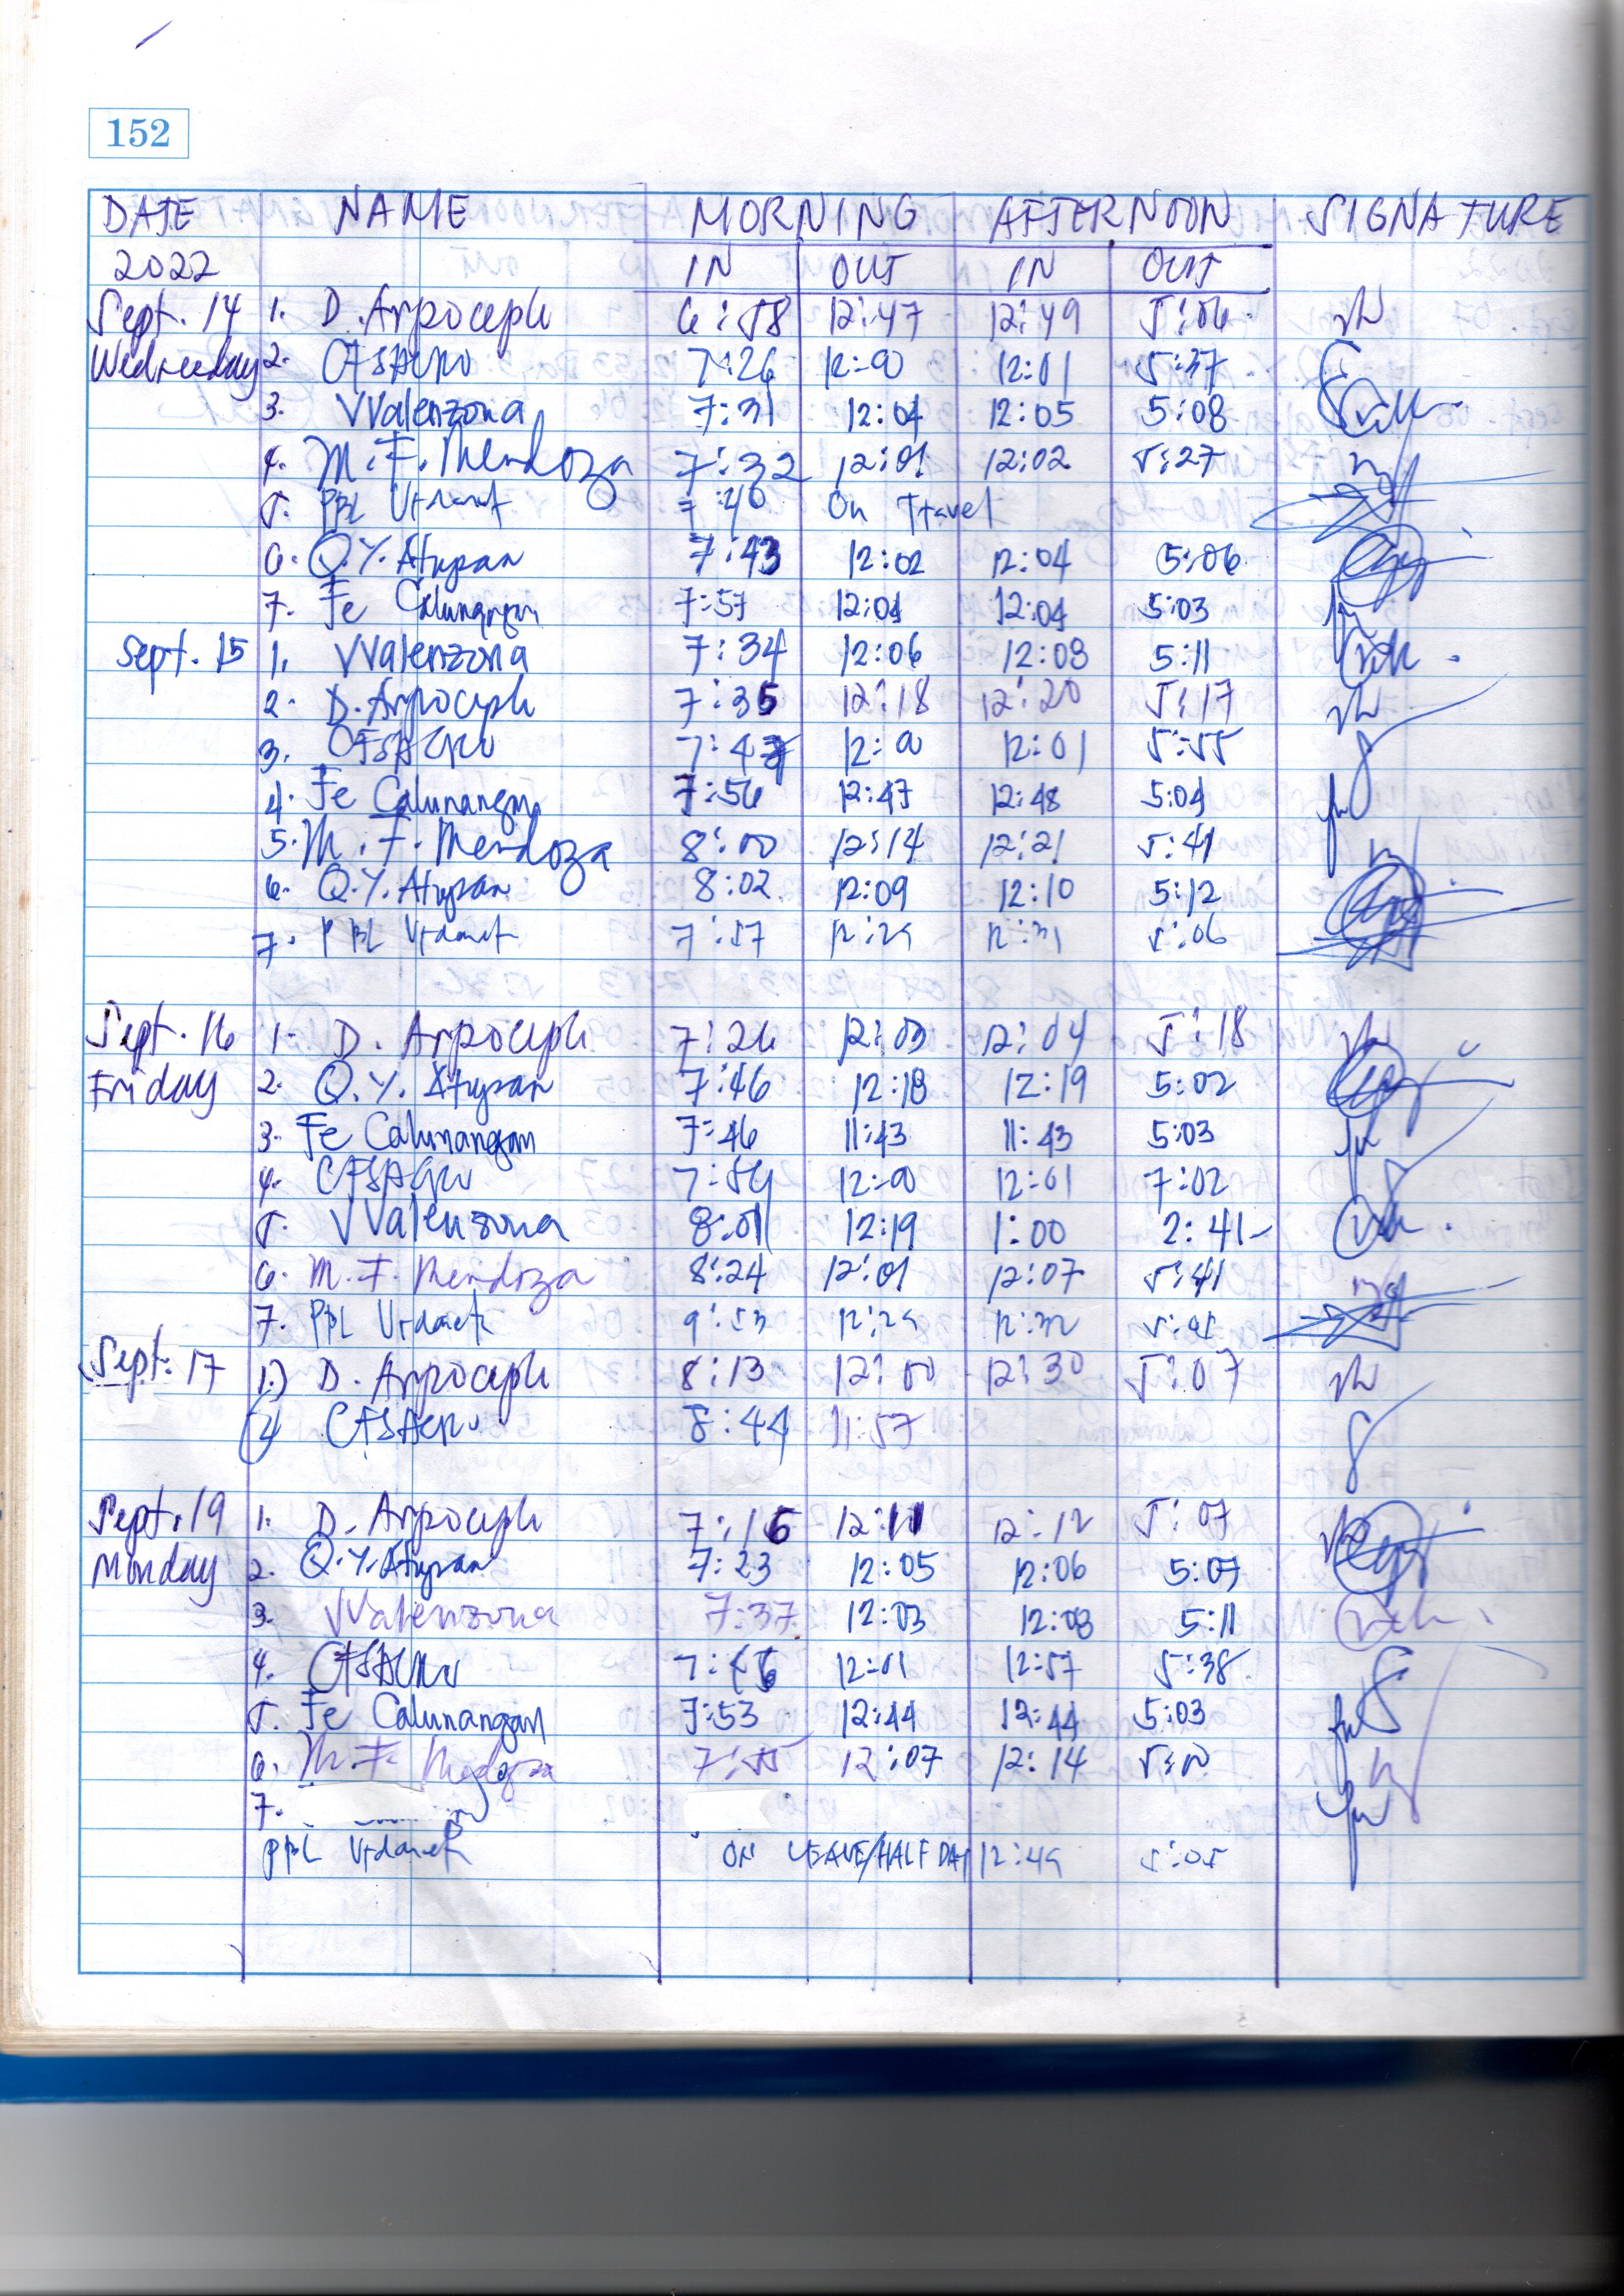 152
DATE NAME MORNING AFTERNOON SIGNATURE
2022 IN OUT IN OUT
Sept. 14 1. D. Arpoceph 6:58 12:47 12:49 5:06
Wednesday 2. CFSAcro 7:26 12:00 12:01 5:37
3. VValenzona 7:31 12:04 12:05 5:08
4. M. F. Mendoza 7:32 12:01 12:02 5:27
5. PBL Urdaneta 7:40 On Travel
6. Q.Y. Atupan 7:43 12:02 12:04 5:06
7. Fe Calunangan 7:57 12:04 12:04 5:03
Sept. 15 1. VValenzona 7:34 12:06 12:08 5:11
2. D. Arpoceph 7:35 12:18 12:20 5:17
3. CFSAcro 7:47 12:00 12:01 5:55
4. Fe Calunangan 7:56 12:47 12:48 5:04
5. M. F. Mendoza 8:00 12:14 12:21 5:41
6. Q.Y. Atupan 8:02 12:09 12:10 5:12
7. PBL Urdaneta 7:57 12:29 12:31 5:06
Sept. 16 1. D. Arpoceph 7:26 12:03 12:04 5:18
Friday 2. Q.Y. Atupan 7:46 12:18 12:19 5:02
3. Fe Calunangan 7:46 11:43 11:43 5:03
4. CFSAcro 7:54 12:00 12:01 7:02
5. VValenzona 8:01 12:19 1:00 2:41
6. M. F. Mendoza 8:24 12:01 12:07 5:41
7. PBL Urdaneta 9:53 12:29 12:32 5:05
Sept. 17 1.) D. Arpoceph 8:13 12:00 12:30 5:07
2 CFSAcro 8:44 11:57
Sept. 19 1. D. Arpoceph 7:15 12:11 12:12 5:07
Monday 2. Q.Y. Atupan 7:23 12:05 12:06 5:07
3. VValenzona 7:37 12:03 12:08 5:11
4. CFSAcro 12:01 12:57 5:38
5. Fe Calunangan 7:53 12:44 12:44 5:03
6. M. F. Mendoza 7:55 12:07 12:14
7.
PBL Urdaneta ON LEAVE/HALF DAY 12:49 5:05